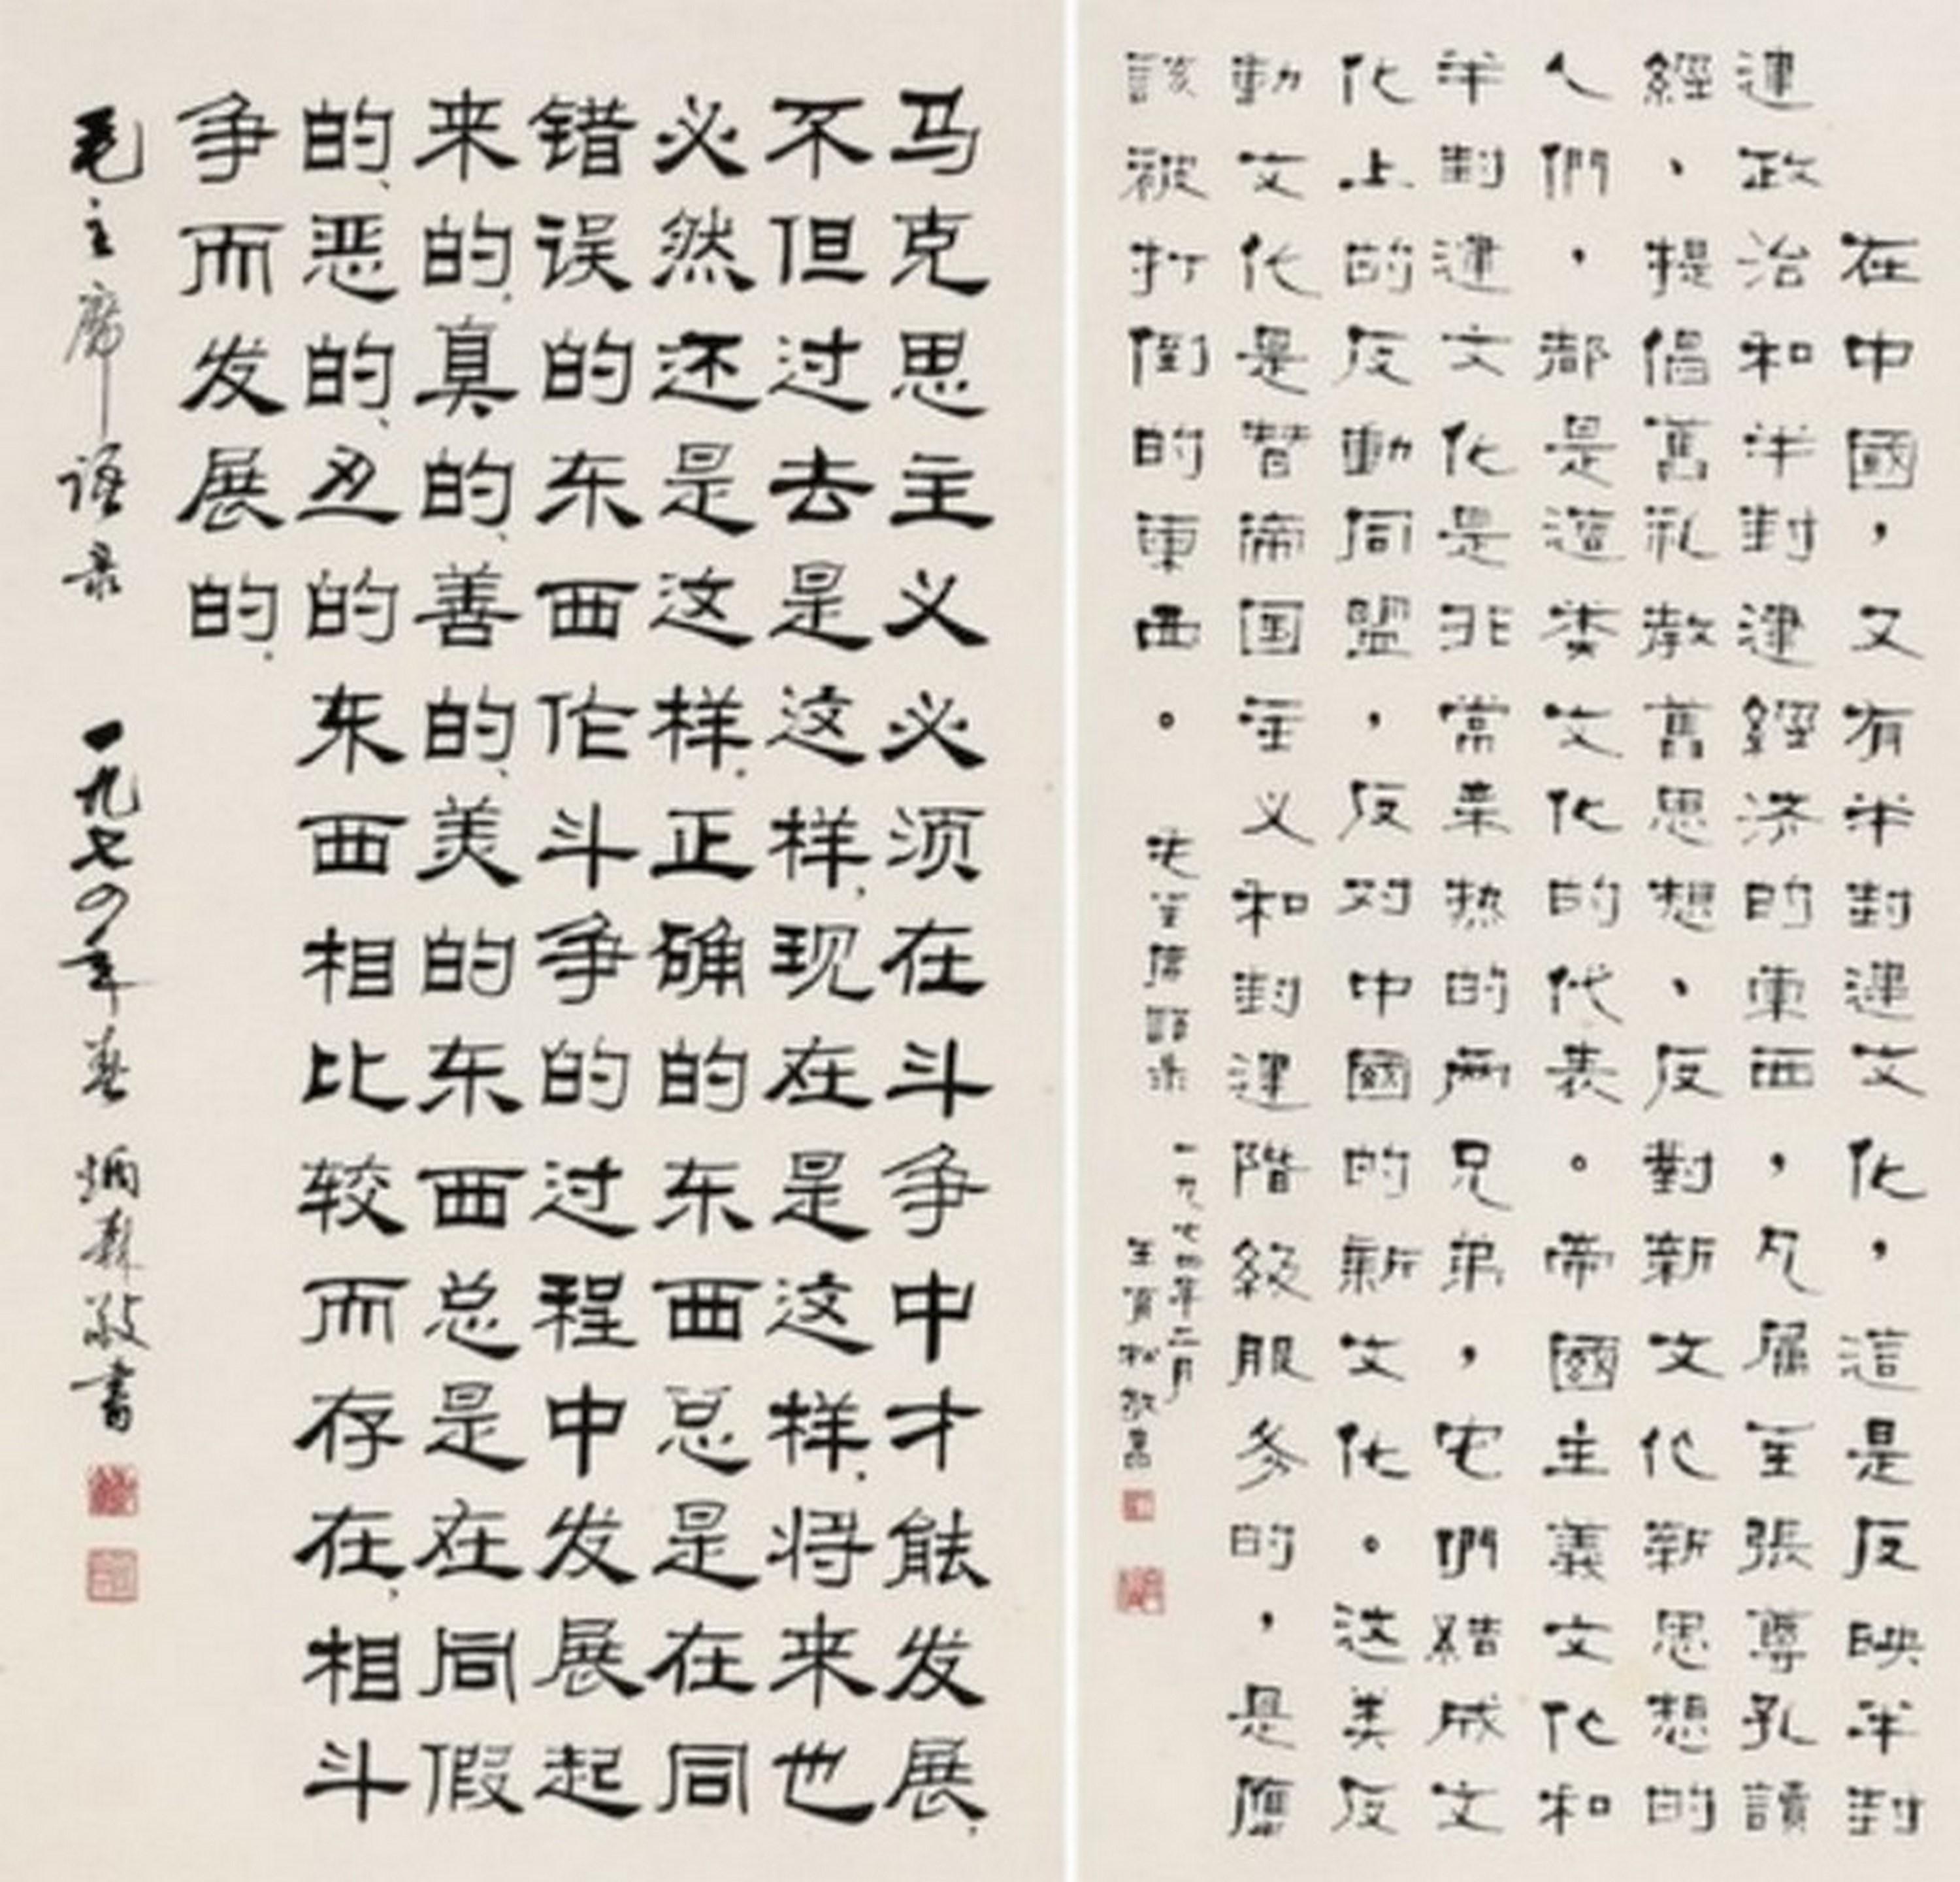 在中國，又有半封建文化，這是反映半封
建政治和半封建經济的東西，凡属主張尊孔讀
經、提倡舊礼教舊思想、反對新文化新思想的
人們，都是這类文化的代表。帝國主義文化和
半封建文化是非常亲热的两兄弟，它們結成文
化上的反動同盟，反对中國的新文化。这类反
動文化是替帝国主义和封建階級服务的，是應
該被打倒的東西。 毛主席語录
一九七四年二月
敬書
马克思主义必须在斗争中才能发展，
不但过去是这样，现在是这样。将来也
必然还是这样。正确的东西总是在同
错误的东西作斗争的过程中发展起
来的。真的、善的、美的东西总是在同假
的、恶的、丑的东西相比较而存在，相斗
争而发展的。
毛主席语录 一九七〇年春 炳森敬書